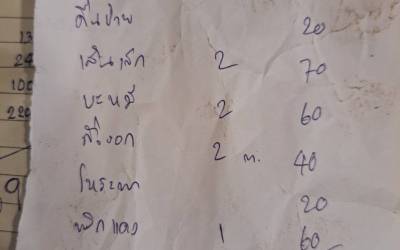 13
คื่นช่าย 20
24
เส้นเล็ก 2 70
100
บะหมี่ 2 60
220
ถั่วงอก 2 ก. 40
โหระพา 20
9
พริกแดง 1 60